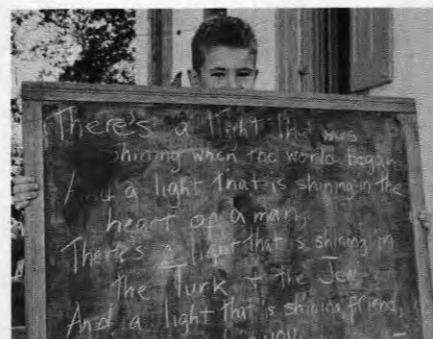 There's a light that was
shining when the world began,
And a light that is shining in the
heart of a man,
There's a light that is shining in
the Turk + the Jew
And a light that is shining friend,
in you